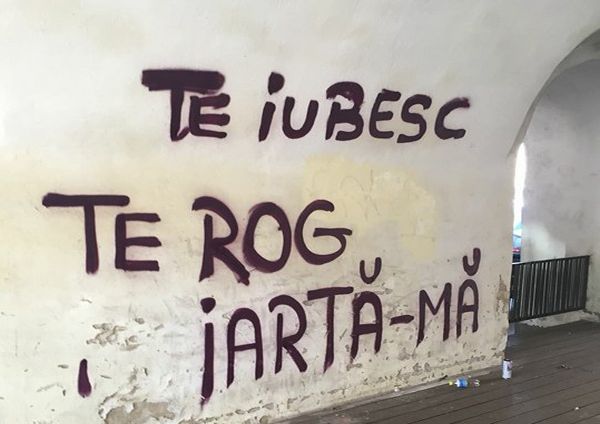 TE iUBESC
TE ROG
iARTĂ-MĂ